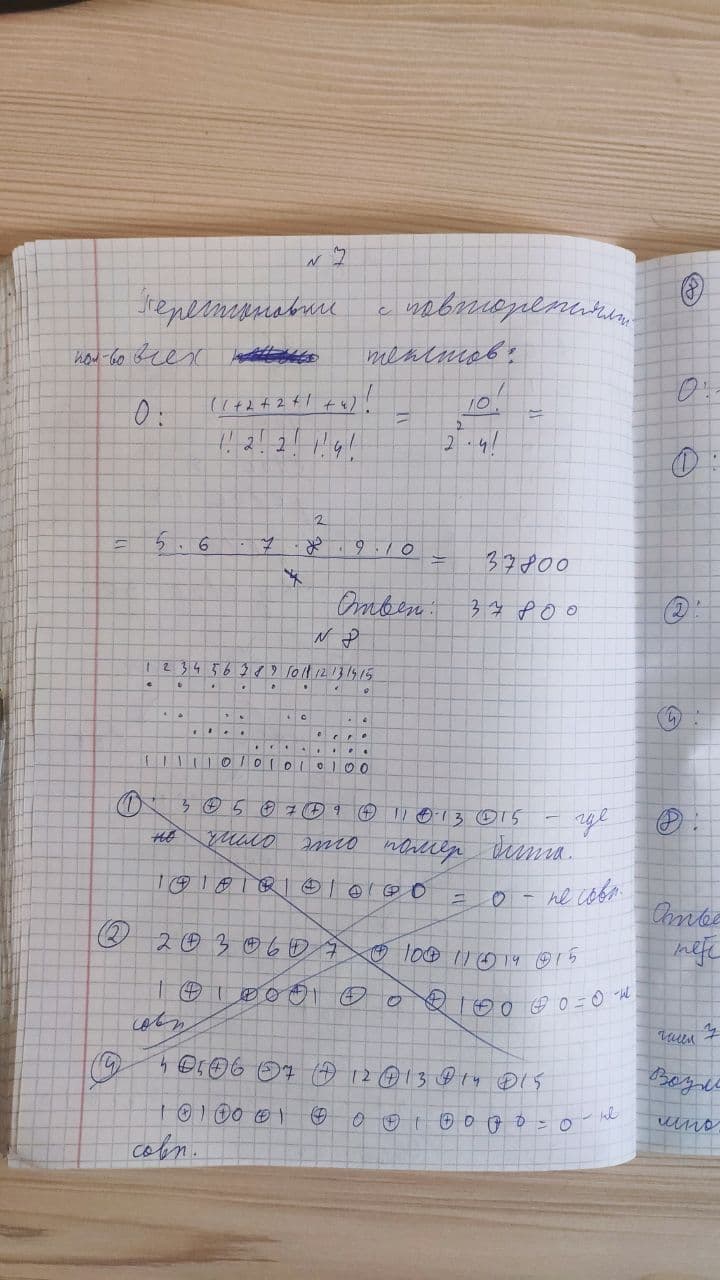 № 7
Перестановки с повторениями
кол-во всех текстов:
O: (1+2+2+1+4)! / 1! 2! 2! 1! 4! = 10! / 2² · 4! =
= 5 · 6 · 7 · 8 · 9 · 10 / 4 = 37800
2
Ответ: 37800
№ 8
1 2 3 4 5 6 7 8 9 10 11 12 13 14 15
1 1 1 1 1 0 1 0 1 0 1 0 1 0 0
①: 3 ⊕ 5 ⊕ 7 ⊕ 9 ⊕ 11 ⊕ 13 ⊕ 15 – где
но число это номер бита.
1 ⊕ 1 ⊕ 1 ⊕ 1 ⊕ 1 ⊕ 1 ⊕ 0 = 0 – не совп.
② 2 ⊕ 3 ⊕ 6 ⊕ 7 ⊕ 10 ⊕ 11 ⊕ 14 ⊕ 15
1 ⊕ 1 ⊕ 0 ⊕ 1 ⊕ 0 ⊕ 1 ⊕ 0 ⊕ 0 = 0 – не
совп
④ 4 ⊕ 5 ⊕ 6 ⊕ 7 ⊕ 12 ⊕ 13 ⊕ 14 ⊕ 15
1 ⊕ 1 ⊕ 0 ⊕ 1 ⊕ 0 ⊕ 1 ⊕ 0 ⊕ 0 = 0 – не
совп.
⑧
O:
①:
②:
④:
⑧:
Отве
чисел 7
Возм
мно